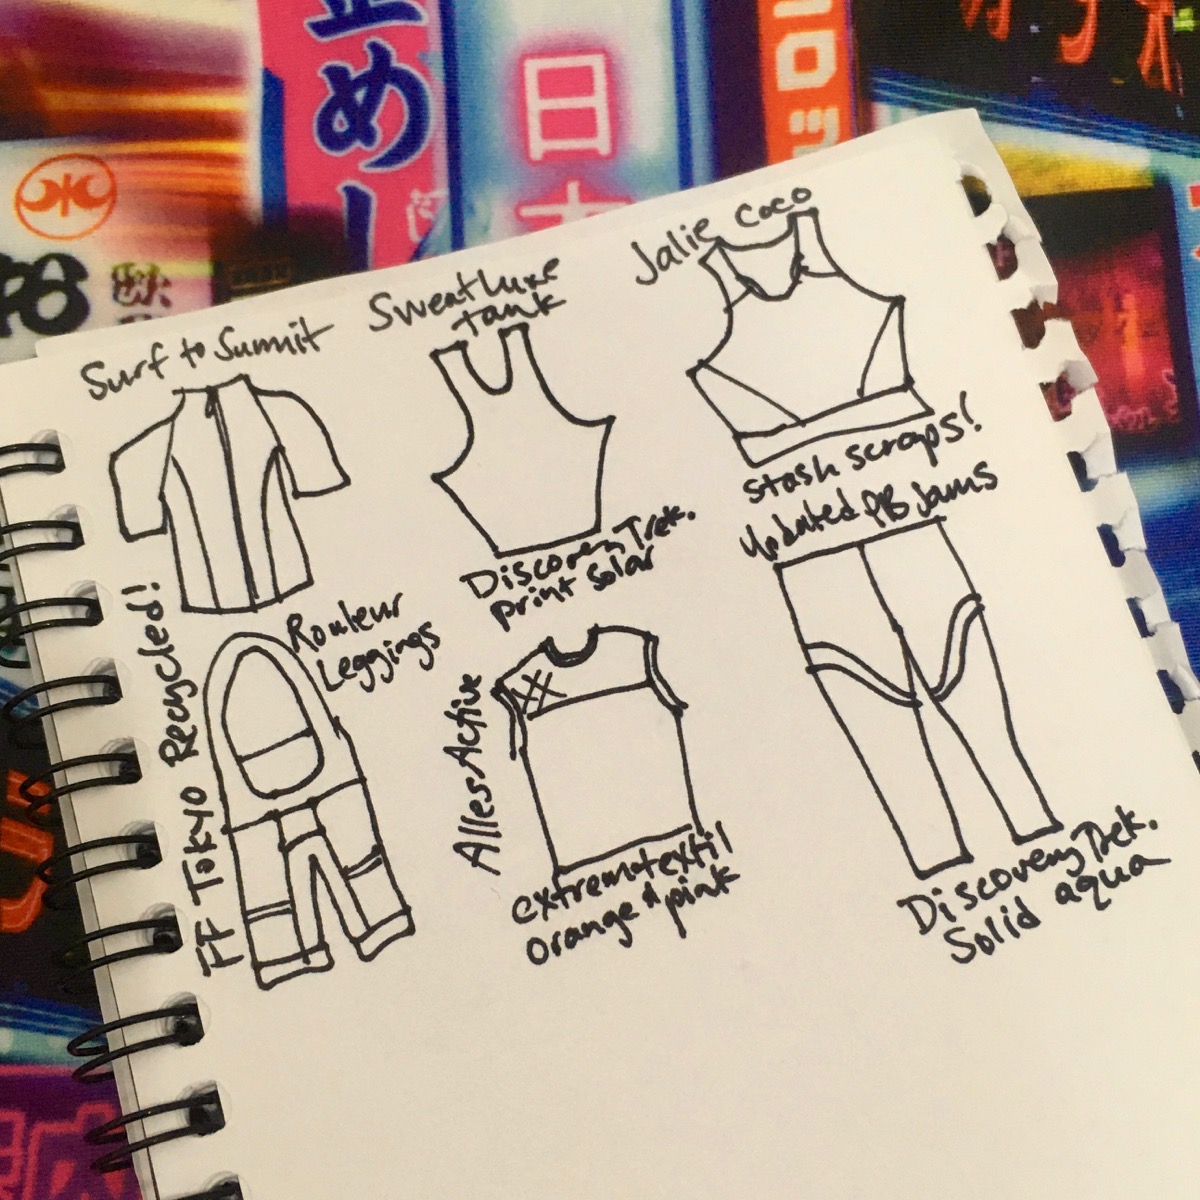 止めし
日本
映
Surf to Summit
Sweatluxe
tank
Jalie Coco
stash scraps!
Updated PB Jams
Discovery Trek.
print solar
Rouleur
Leggings
FF Tokyo Recycled!
Alles Active
extremtextil
orange & pink
Discovery Trek.
Solid aqua